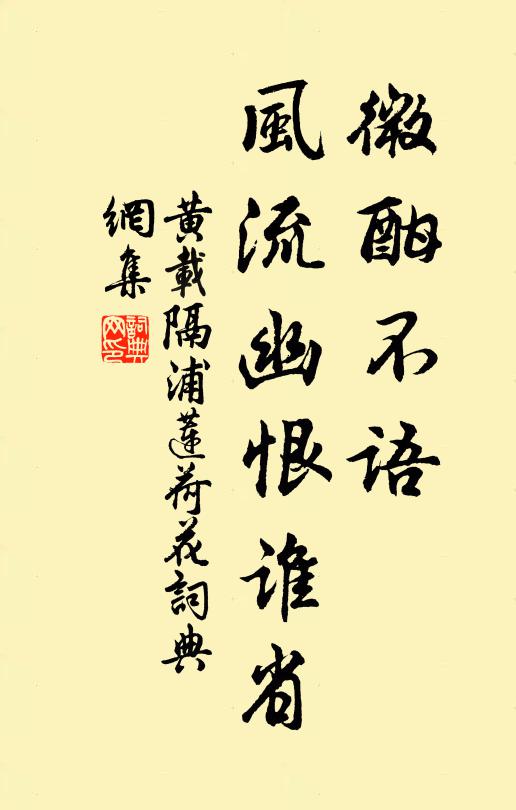 微酣不語
風流幽恨誰省
黃載隔浦蓮荷花詞典
網集
詞典
网印